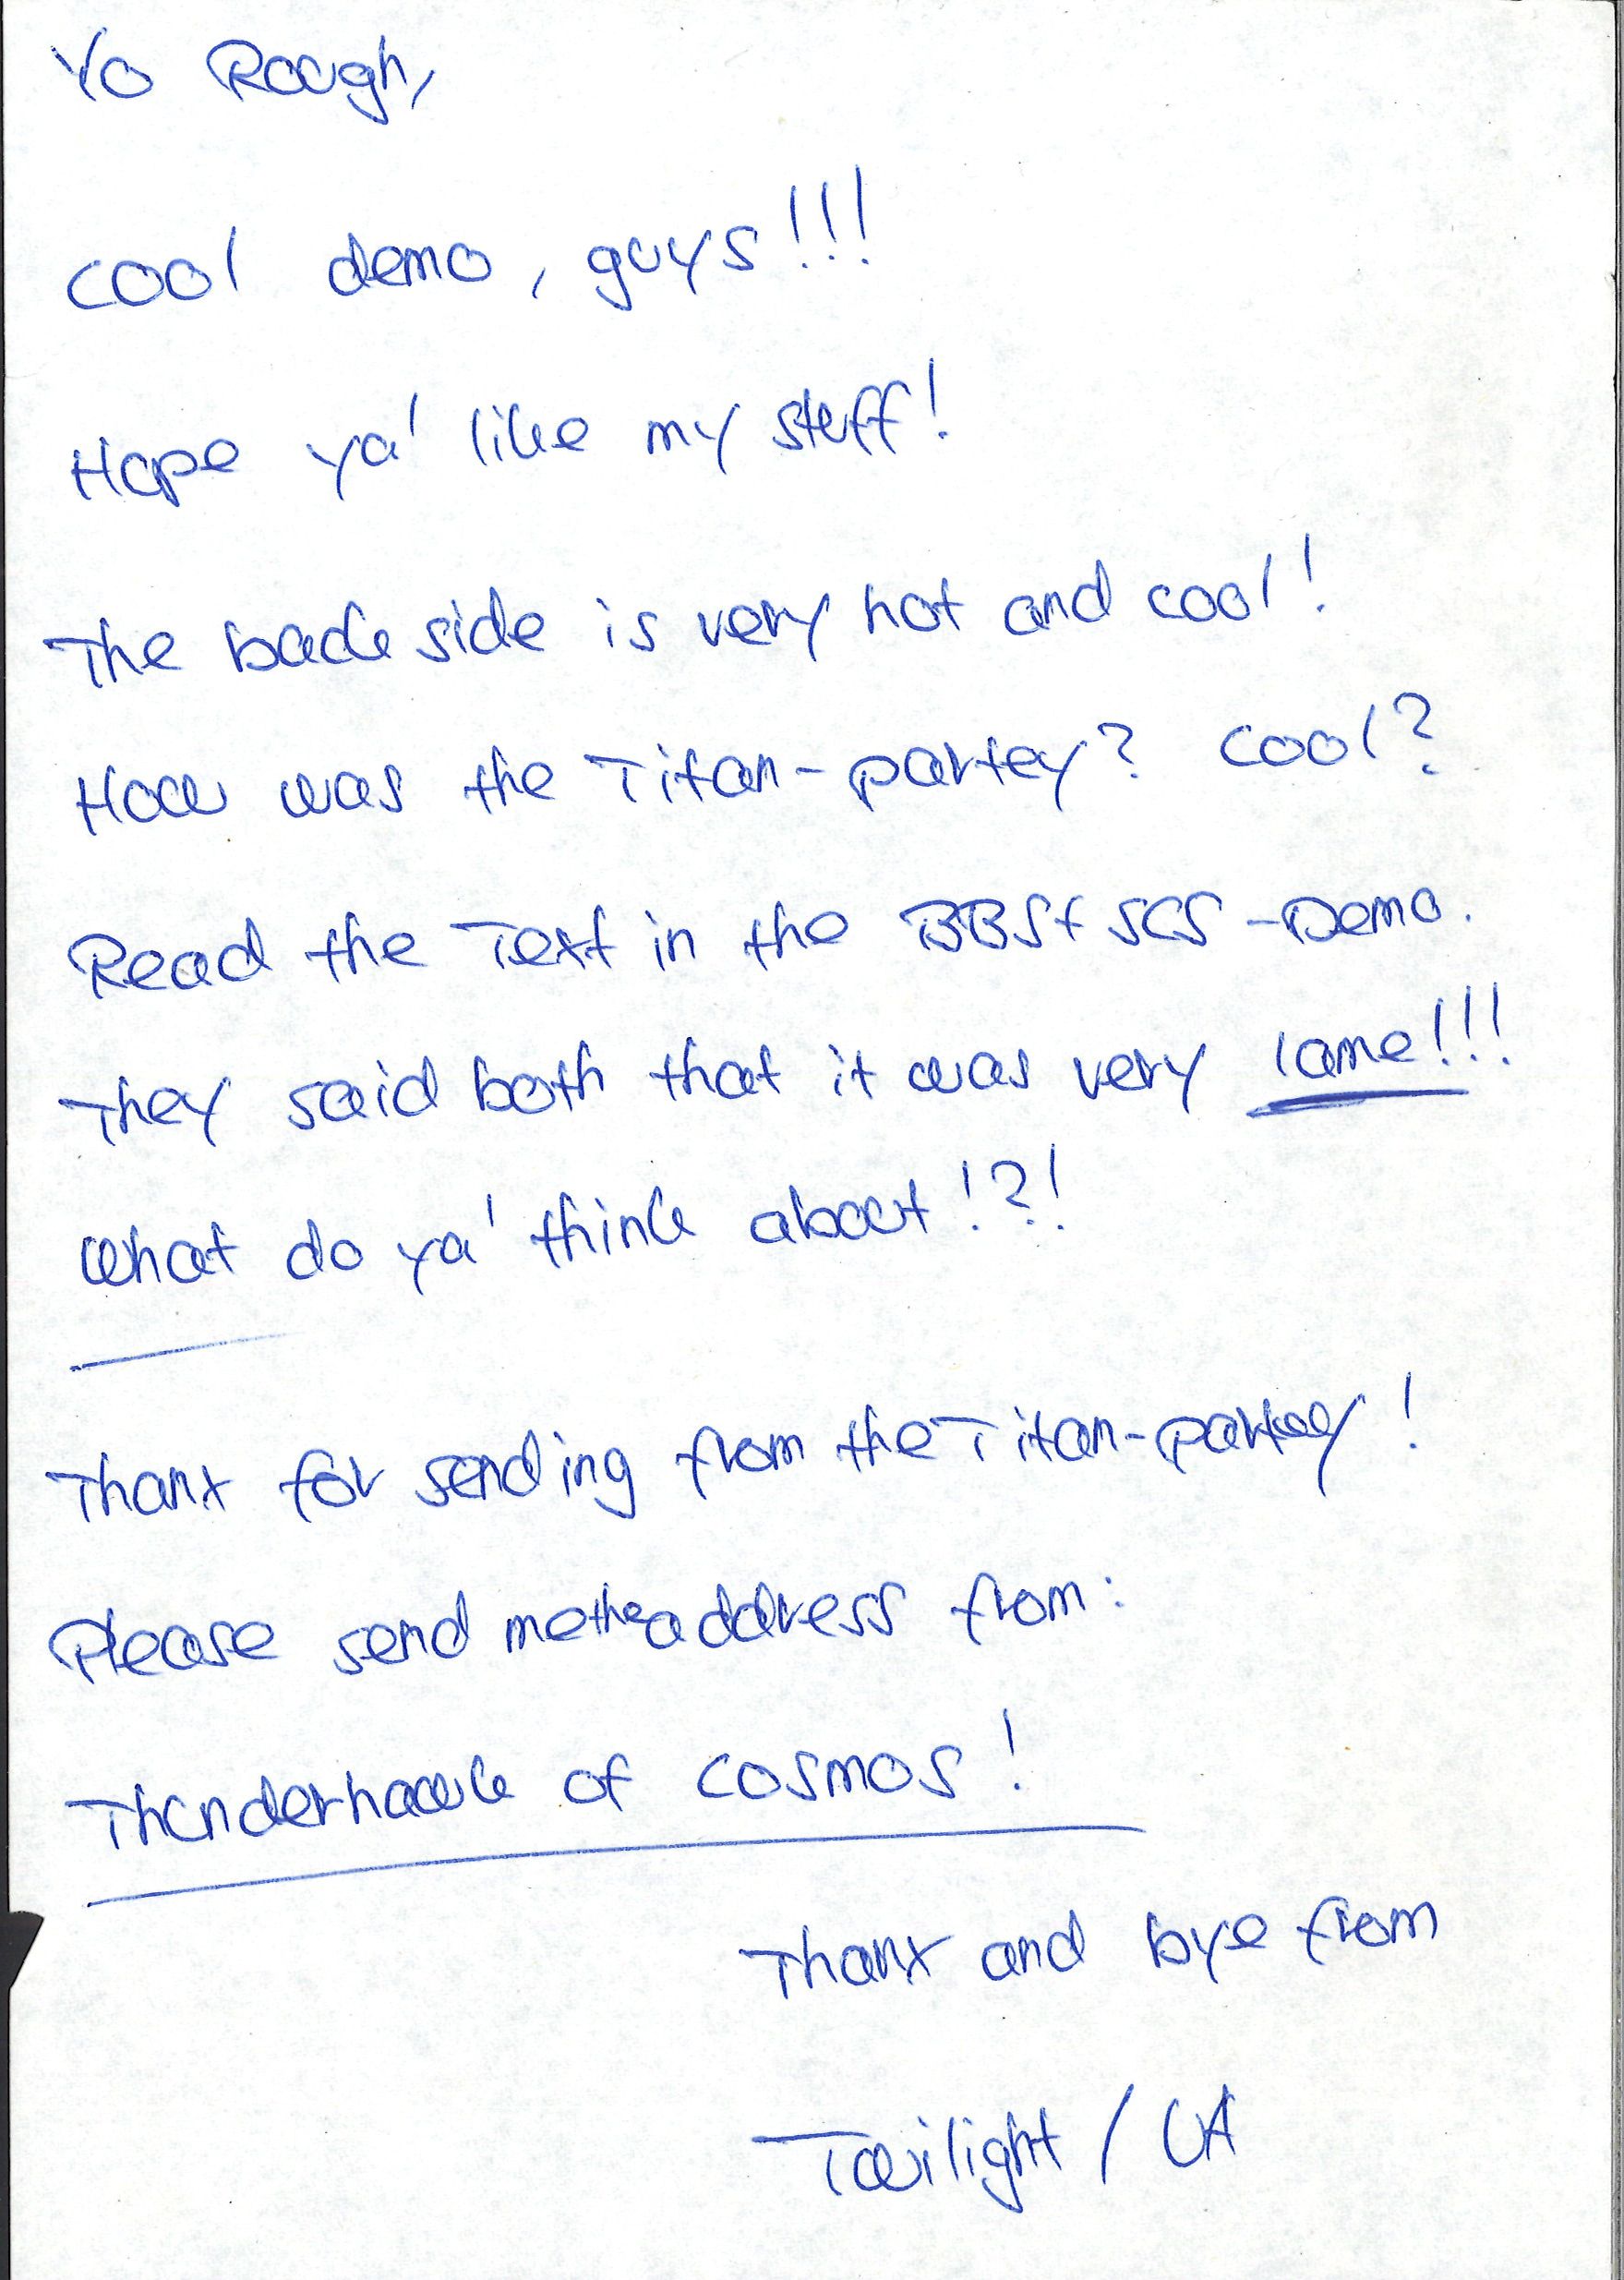 Yo Rough,
Cool demo, guys!!!
Hope ya' like my stuff!
The back side is very hot and cool!
How was the Titan-partey? Cool?
Read the Text in the BBSt SCS-Demo.
They said both that it was very lame!!!
What do ya' think about!?!
Thanx for sending from the Titan-partey!
Please send me the address from:
Thunderhawk of Cosmos!
Thanx and bye from
Twilight / UA